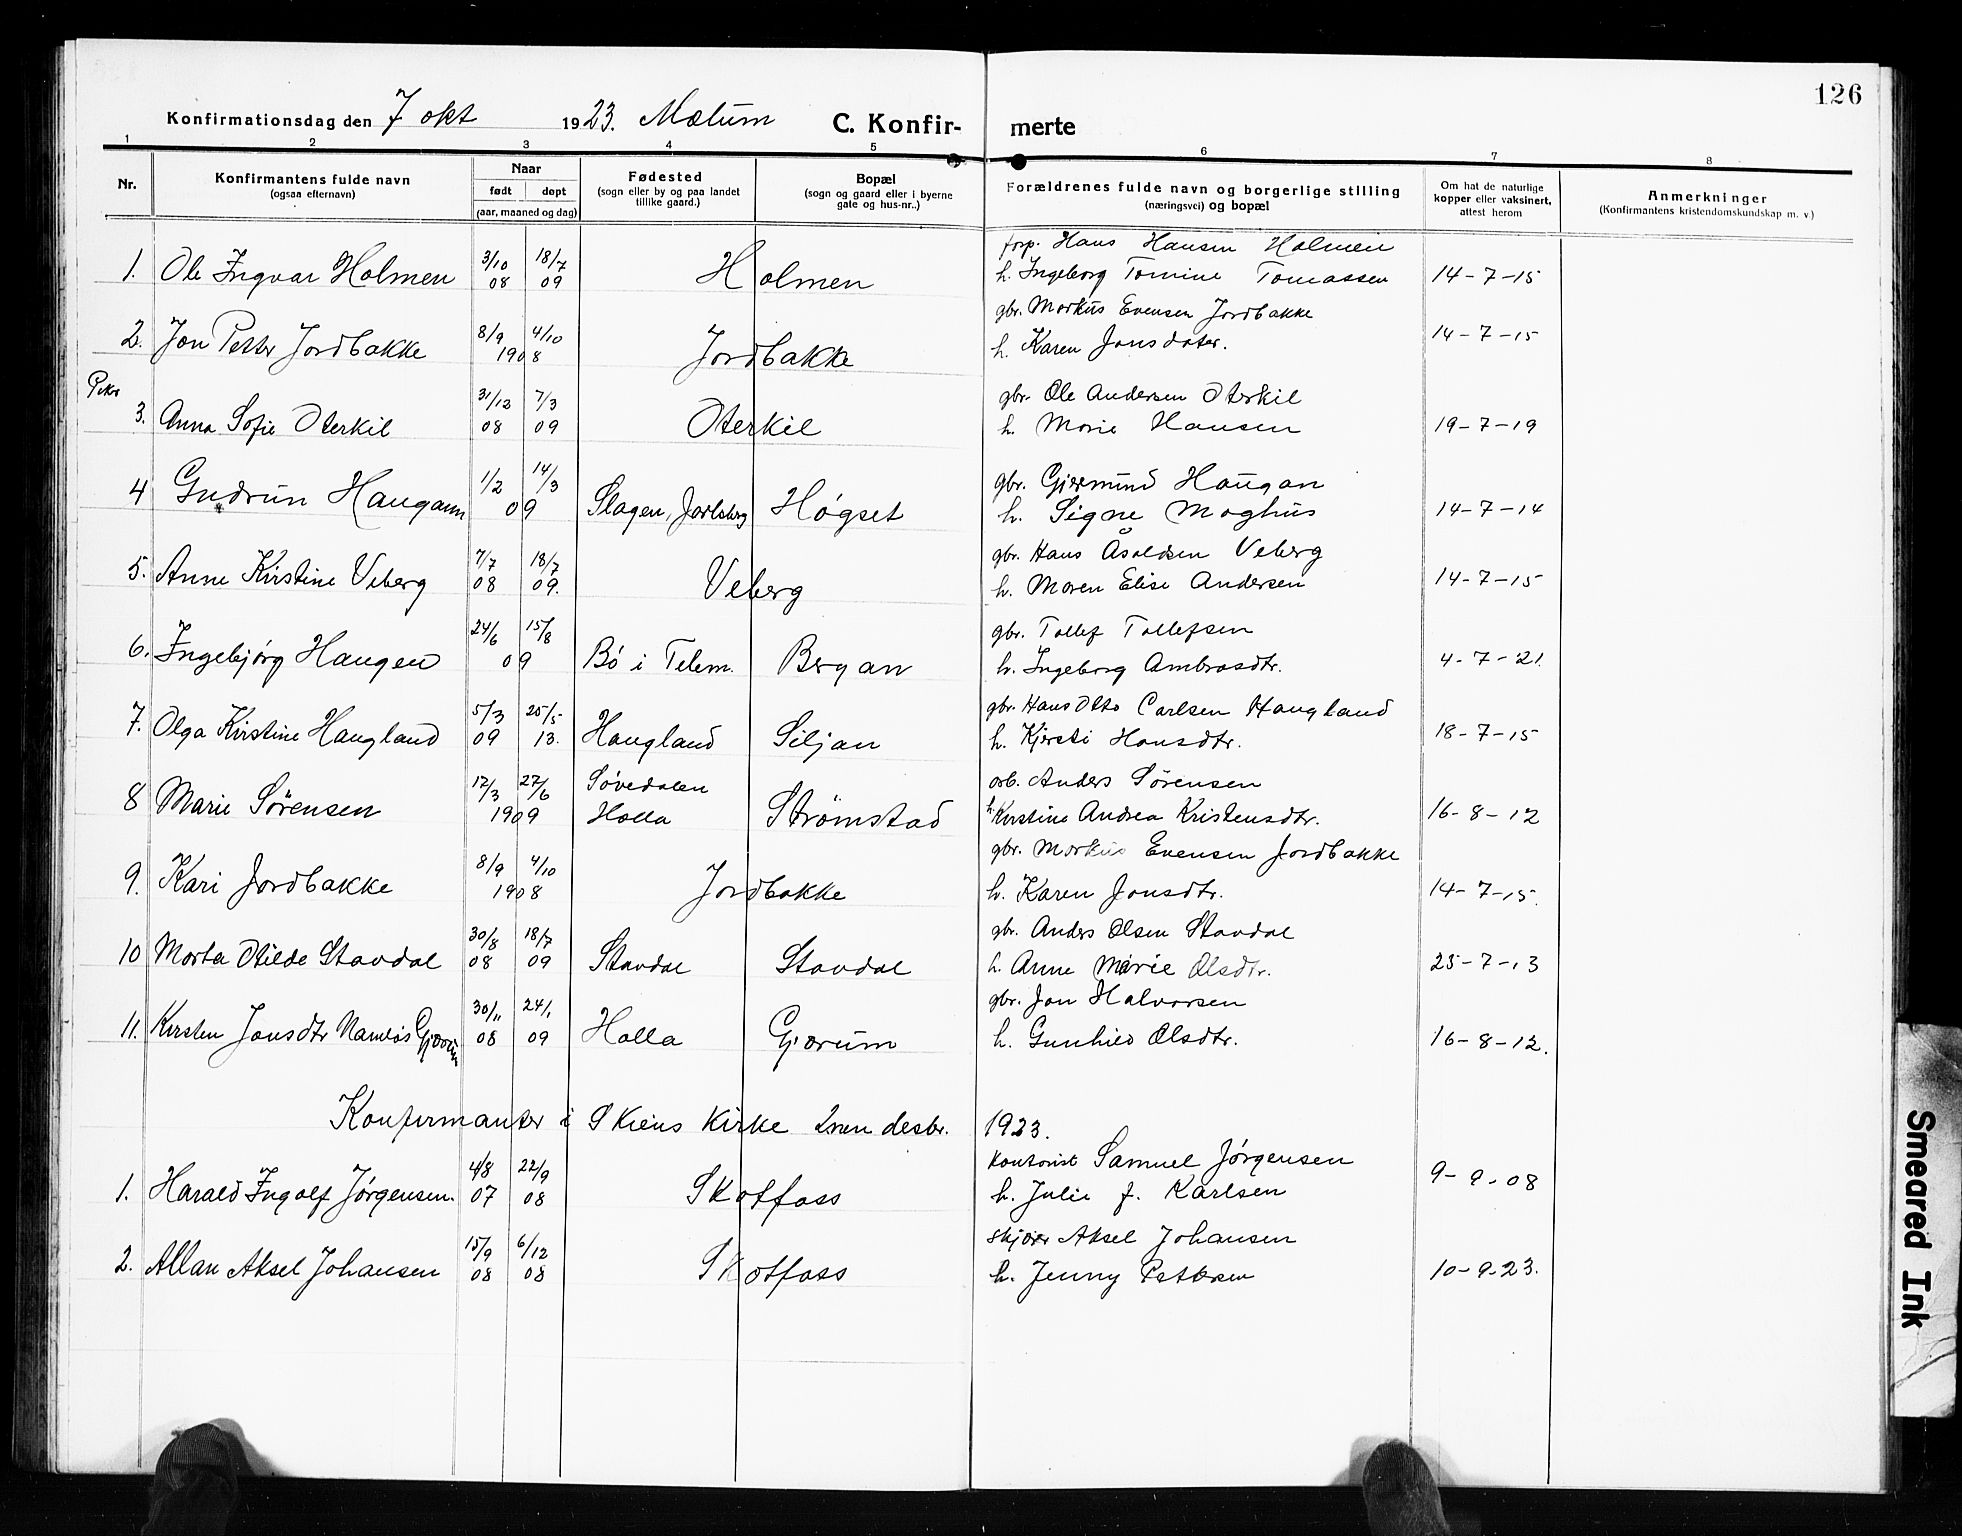 126
Konfirmationsdag den 7 okt 1923. Mælum C. Konfir- merte
1 2 3 4 5 6 7 8
Nr. Konfirmantens fulde navn (ogsaa efternavn) Naar født døpt (aar, maaned og dag) Fødested (sogn eller by og paa landet tillike gaard.) Bopæl (sogn og gaard eller i byerne gate og hus-nr..) Forældrenes fulde navn og borgerlige stilling (næringsvei) og bopæl Om hat de naturlige kopper eller vaksinert, attest herom Anmerkninger (Konfirmantens kristendomskundskap m. v.)
1. Ole Ingvar Holmen 3/10 08 18/7 09 Holmen forp. Hans Hansen Holmen
h. Ingeborg Tomine Tomassen 14-7-15
2. Jon Petter Jordbakke 8/9 4/10 1908 Jordbakke gbr. Markus Evensen Jordbakke
h. Karen Jonsdater. 14-7-15
3. Anna Sofie Oterkil 31/12 08 7/3 09 Oterkil gbr. Ole Andersen Oterkil
h. Marie Hansen 19-7-19
4 Gudrun Haugann 1/2 14/3 09 Slagen, Jarlsberg Høgset gbr. Gjermund Haugan
h. Signe Moghus 14-7-14
5. Anne Kirstine Veberg 7/7 08 18/7 09. Veberg gbr. Hans Åsoldsen Veberg
h. Maren Elise Andersen 14-7-15
6. Ingebjørg Haugen 24/6 15/8 09 Bø i Telem. Bergan gbr. Tollef Tollefsen
h. Ingeborg Ambrosdtr. 4-7-21.
7. Olga Kirstine Haugland 5/3 09 25/5 13. Haugland Siljan gbr. Hans Otto Carlsen Haugland
h. Kjersti Hansdtr. 18-7-15
8 Marie Sørensen 17/3 27/6 1909 Søvedalen Holla Strömstad arb. Anders Sørensen
h. Kirstine Andrea Kristensdtr. 16-8-12
9. Kari Jordbakke 8/9 4/10 1908 Jordbakke gbr. Markus Evensen Jordbakke
h. Karen Jonsdtr. 14-7-15.
10 Marta Otilde Stavdal 30/8 08 18/7 09 Stavdal Stavdal gbr. Anders Olsen Stavdal
h. Anne Marie Olsdtr. 25-7-13
11. Kirsten Jonsdtr Namløs Gjærum 30/11 08 24/1 09 Holla Gjærum gbr. Jon Halvorsen
h. Gunhild Olsdtr. 16-8-12.
Konfirmanter i Skiens Kirke 2nen desbr. 1923.
1. Harald Ingolf Jørgensen. 4/8 07 22/9 08 Skotfoss Kontorist Samuel Jørgensen
h. Julie f. Karlsen 9-9-08
2. Allan Aksel Johansen 15/9 08 6/12 08 Skotfoss Aksel Johansen
h. Jenny Pettersen 10-9-23.
Smeared Ink